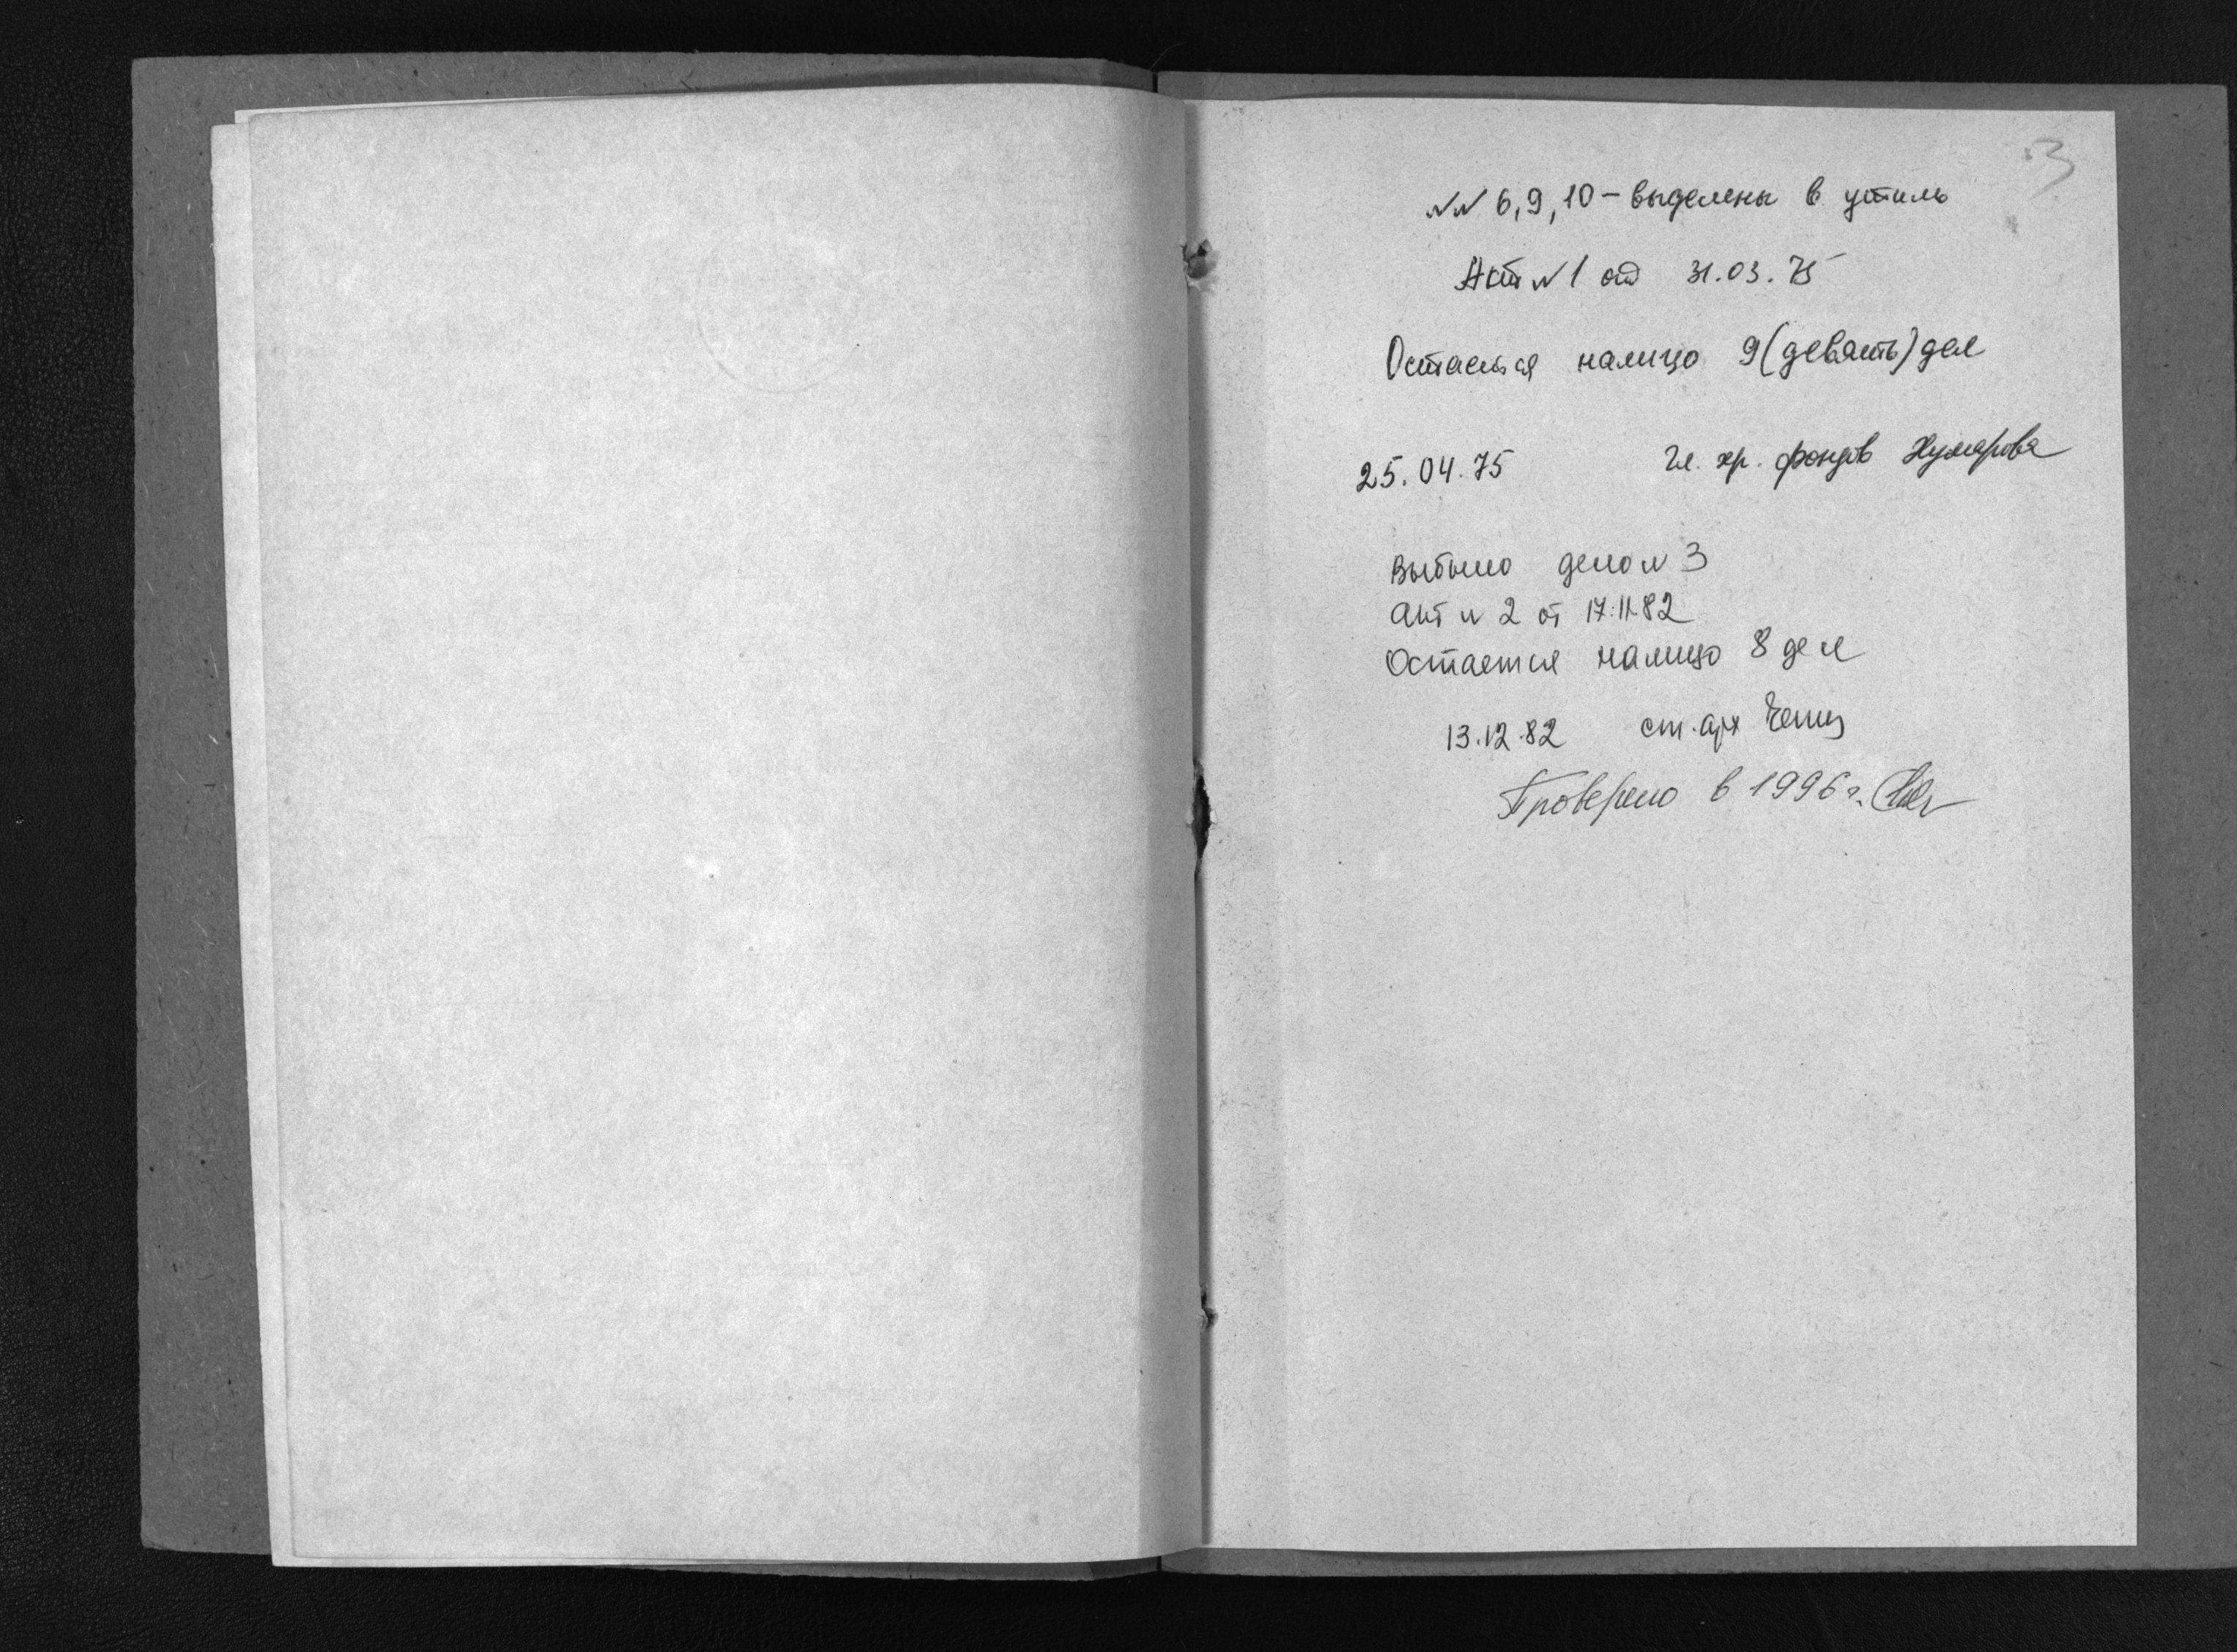 3
NN 6, 9, 10 – выделены в утиль
Акт N 1 от 31.03.75
Остается налицо 9 (девять) дел
25.04.75 Гл. хр. фондов
Выбыло дело N 3
Акт N 2 от 17.11.82
Остается налицо 8 дел
13.12.82 ст. арх
Проверено в 1996 г.